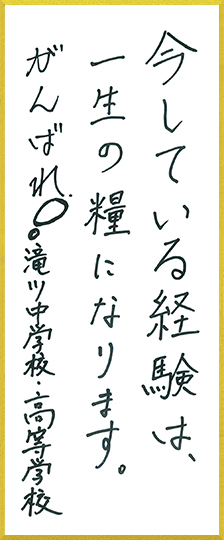 今している経験は、
一生の糧になります。
がんばれ!滝川中学校・高等学校